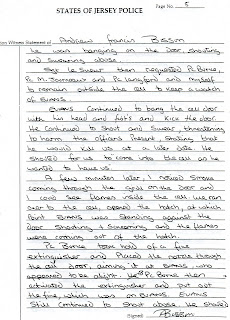 STATES OF JERSEY POLICE
Page No. 5
Witness Statement of Andrew Francis Bisson
he was banging on the door, shouting
and swearing abuse.
Sgt Le Sueur then requested Pc Burne,
Pc M. and Pc Langford and myself
to remain outside the cell to keep a watch
of
Evans continued to bang the cell door
with his head and and kick the door.
He continued to shout and swear, threatening
to harm the officers present stating that
he would kill us at a later date. He
shouted for us to come into the cell as he
wanted to have us.
A few minutes later, I noticed smoke
coming through the grill on the door and
I could see flames inside the cell. We ran
over to the cell, opened the hatch, at which
Point Evans was standing against the
door shouting & screaming and the flames
were coming out of the hatch.
Pc Burne took hold of a fire
extinguisher and placed the nozzle through
the cell door, aiming it at Evans who
appeared to be alight. Pc Burne then
activated the extinguisher and put out
the fire which was on Evans. Evans
Still continued to shout abuse. He shouted
Signed ABisson